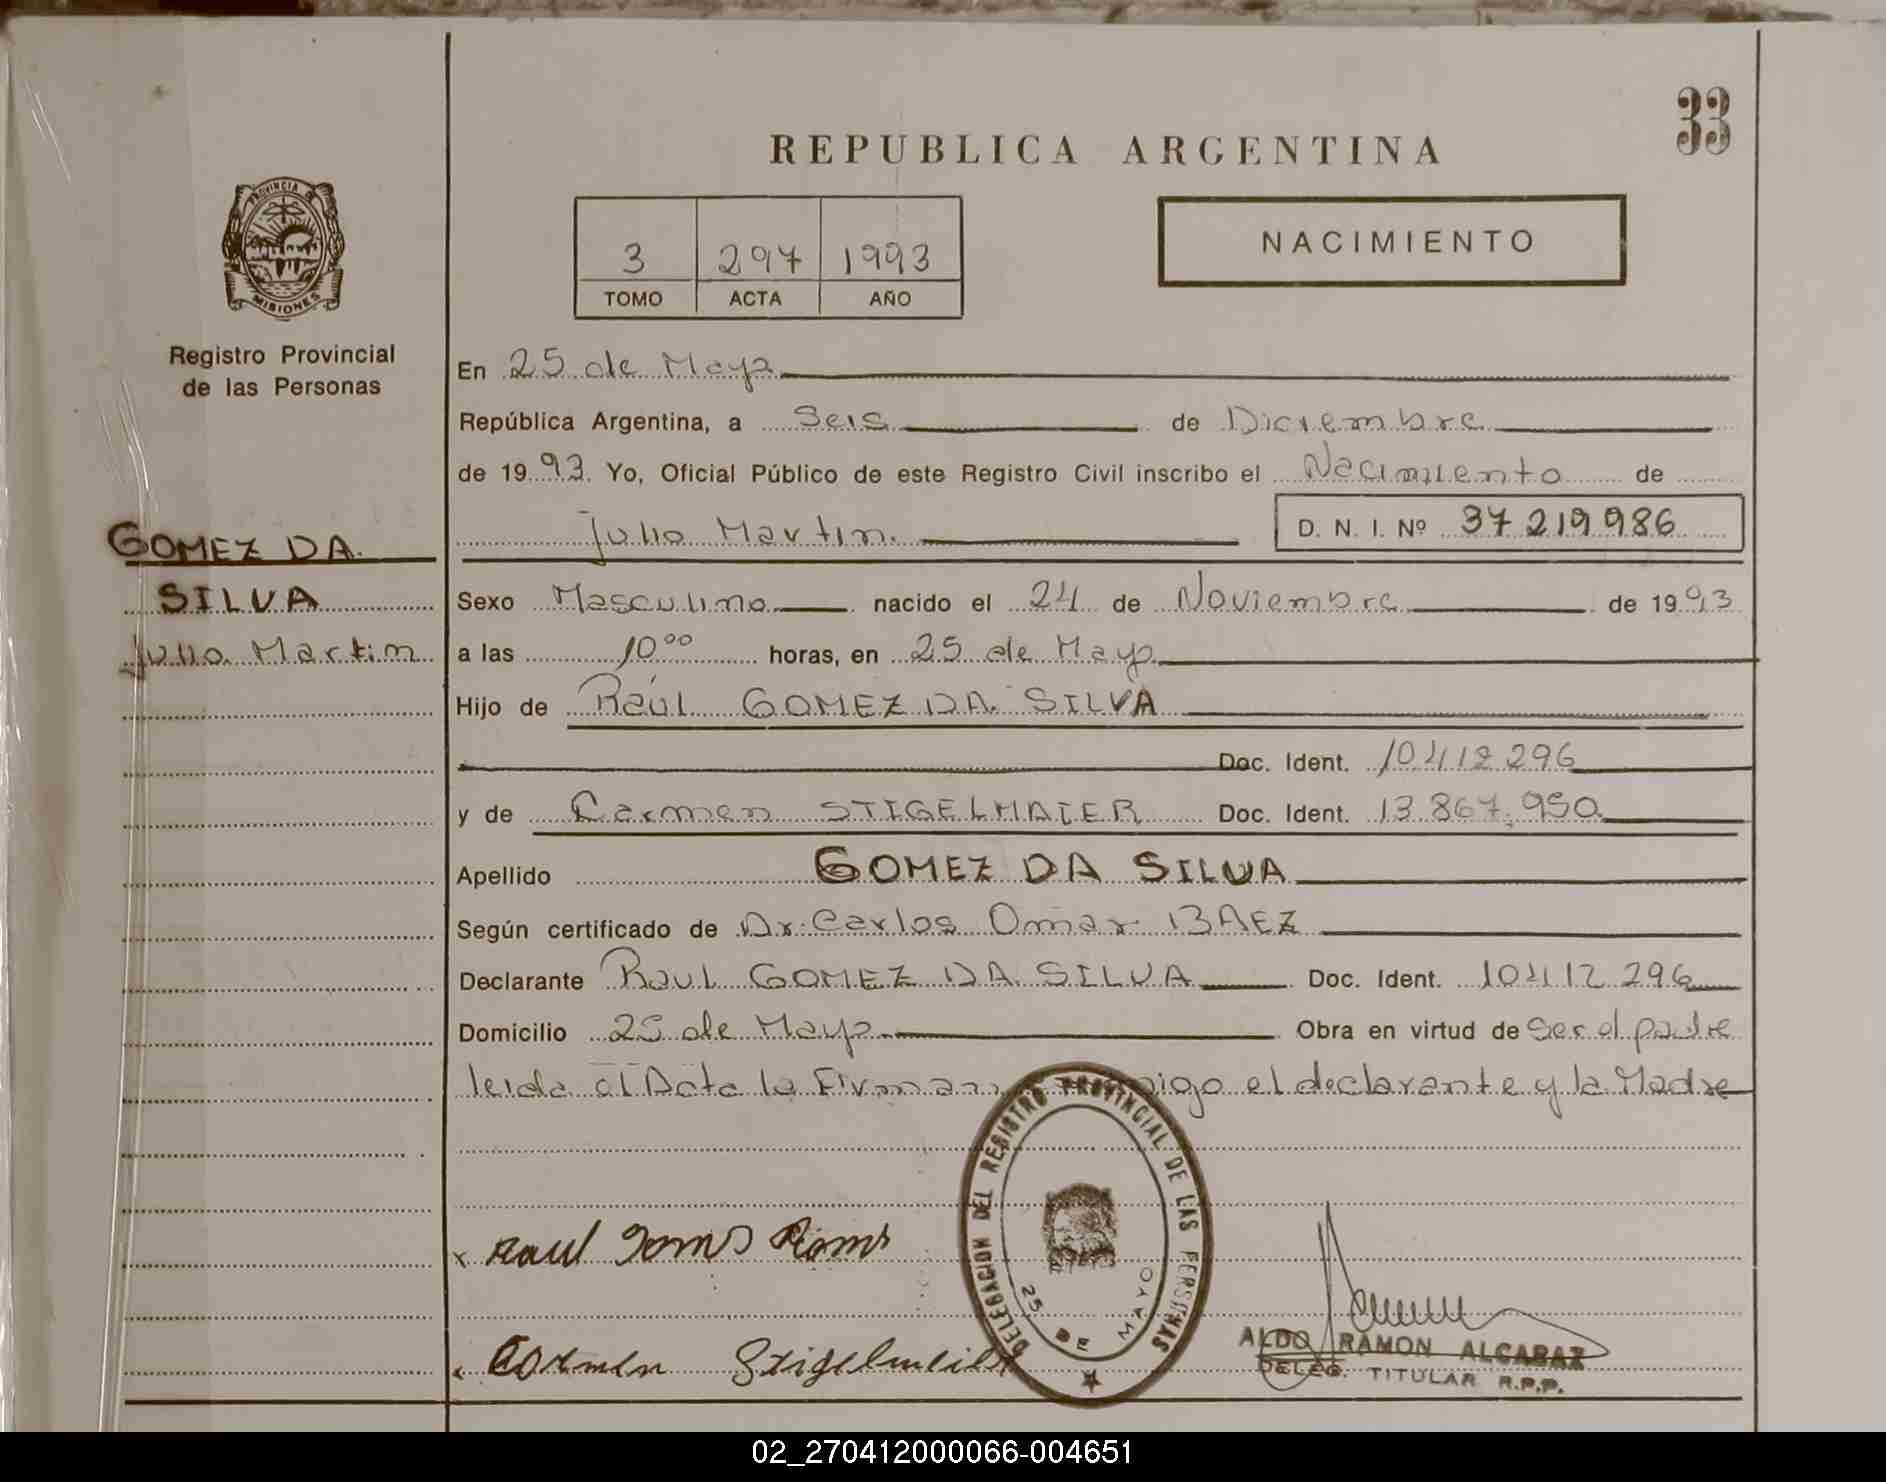 33
REPUBLICA ARGENTINA
PROVINCIA DE
MISIONES
Registro Provincial
de las Personas
3 297 1993
TOMO ACTA AÑO
NACIMIENTO
En 25 de Mayo
República Argentina, a Seis de Diciembre
de 1993. Yo, Oficial Público de este Registro Civil inscribo el Nacimiento de
Julio Martin D. N. I. Nº 37 219 986
GOMEZ DA
SILVA
Julio Martin
Sexo Masculino nacido el 24 de Noviembre de 1993
a las 10⁰⁰ horas, en 25 de Mayo
Hijo de Raúl GOMEZ DA SILVA
Doc. Ident. 10412296
y de Carmen STIGELMAIER Doc. Ident. 13.867.950
Apellido GOMEZ DA SILVA
Según certificado de Dr. Carlos Omar BAEZ
Declarante Raul GOMEZ DA SILVA Doc. Ident. 10412296
Domicilio 25 de Mayo Obra en virtud de Ser el padre
leida el Acta la Firman el declarante y la Madre
DELEGACION DEL REGISTRO PROVINCIAL DE LAS PERSONAS
25 DE MAYO
x Raul
Carmen Stigelmeier
ALDO RAMON ALCARAZ
DELEG. TITULAR R.P.P.
02_270412000066-004651